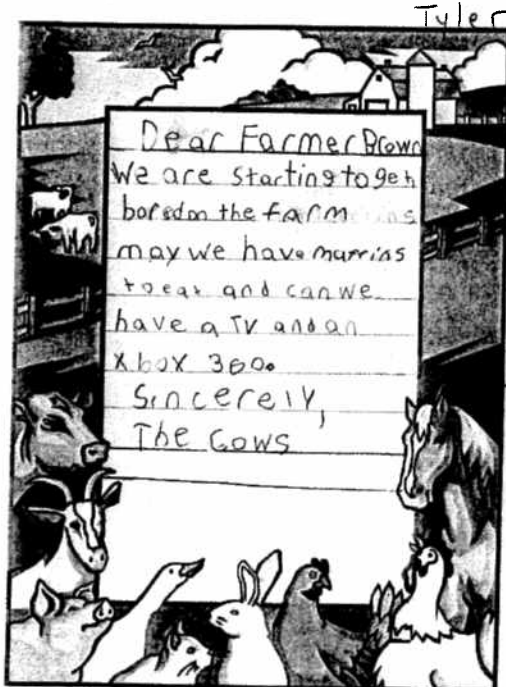 Tyler
Dear Farmer Brown
We are starting to get
bored on the farm
may we have murrins
to eat and can we
have a TV and an
Xbox 360.
Sincerely,
The Cows